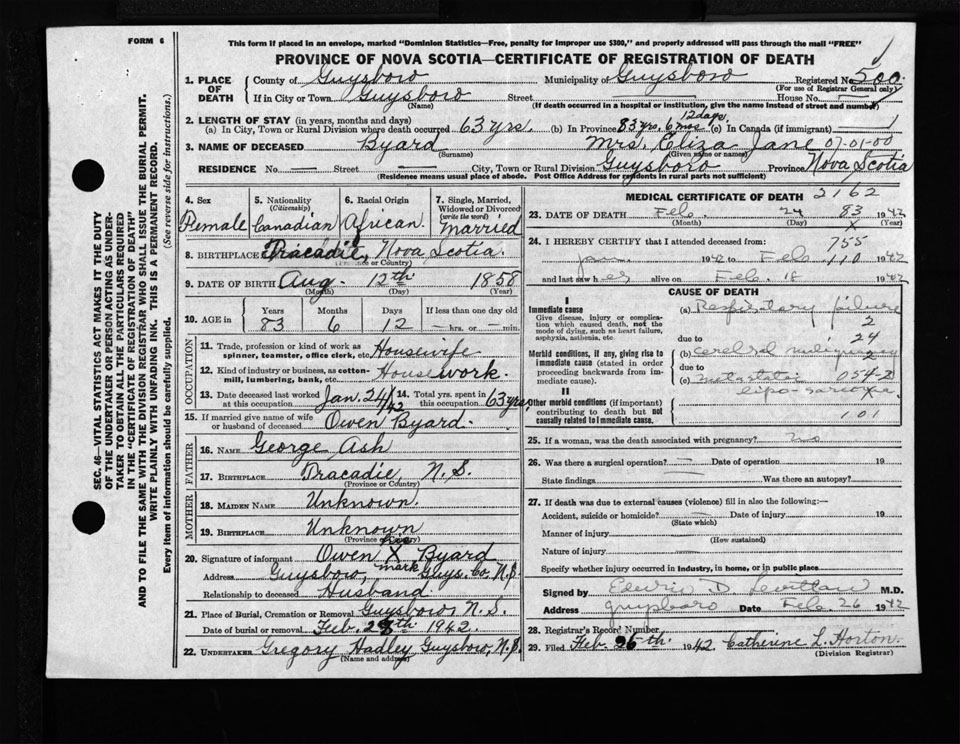 FORM 6
This form if placed in an envelope, marked "Dominion Statistics—Free, penalty for improper use $300," and properly addressed will pass through the mail "FREE"
PROVINCE OF NOVA SCOTIA—CERTIFICATE OF REGISTRATION OF DEATH
1. PLACE OF DEATH County of Guysboro Municipality of Guysboro Registered No. 500
(For use of Registrar General only)
If in City or Town Guysboro Street House No.
(NAME) (If death occurred in a hospital or institution, give the name instead of street and number)
2. LENGTH OF STAY (in years, months and days)
(a) In City, Town or Rural Division where death occurred 63 yrs. (b) In Province 83 yrs. 6 mos 12 days (c) In Canada (if immigrant)
3. NAME OF DECEASED Byard Mrs. Eliza Jane 07-01-00
(Surname) (Given name or names)
RESIDENCE No. — Street — City, Town or Rural Division Guysboro Province Nova Scotia
(Residence means usual place of abode. Post Office Address for residents in rural parts not sufficient)
4. Sex Female
5. Nationality (Citizenship) Canadian
6. Racial Origin African
7. Single, Married, Widowed or Divorced (write the word) Married
8. BIRTHPLACE Tracadie, Nova Scotia.
(Province or Country)
9. DATE OF BIRTH Aug. 12th 1858
(Month) (Day) (Year)
10. AGE in Years 83 Months 6 Days 12 If less than one day old — hrs. or — min.
OCCUPATION
11. Trade, profession or kind of work as spinner, teamster, office clerk, etc. Housewife
12. Kind of industry or business, as cotton-mill, lumbering, bank, etc. Housework.
13. Date deceased last worked at this occupation Jan. 24/42 14. Total yrs. spent in this occupation 63 yrs.
15. If married give name of wife or husband of deceased Owen Byard.
FATHER
16. NAME George Ash
17. BIRTHPLACE Tracadie, N.S.
(Province or Country)
MOTHER
18. MAIDEN NAME Unknown.
19. BIRTHPLACE Unknown
(Province or Country)
20. Signature of informant Owen his X mark Byard
Address Guysboro, Guys. Co. N.S.
Relationship to deceased Husband
21. Place of Burial, Cremation or Removal Guysboro, N.S.
Date of burial or removal Feb. 28th 1942.
22. UNDERTAKER Gregory Hadley Guysboro, N.S.
(Name and address)
MEDICAL CERTIFICATE OF DEATH
2162
23. DATE OF DEATH Feb. 24 83 1942
(Month) (Day) (Year)
24. I HEREBY CERTIFY that I attended deceased from: 755
Jan. 1942 to Feb. 110 1942
and last saw her alive on Feb. 18 1942
CAUSE OF DEATH
I
Immediate cause
Give disease, injury or complication which caused death, not the mode of dying, such as heart failure, asphyxia, asthenia, etc.
(a) Respiratory failure
2
due to 24
Morbid conditions, if any, giving rise to immediate cause (stated in order proceeding backwards from immediate cause).
(b) cerebral
due to
(c) 054-2
II
Other morbid conditions (if important) contributing to death but not causally related to immediate cause.
101
25. If a woman, was the death associated with pregnancy? no
26. Was there a surgical operation? — Date of operation 19
State findings Was there an autopsy?
27. If death was due to external causes (violence) fill in also the following:—
Accident, suicide or homicide? — Date of injury 19
(State which)
Manner of injury
(How sustained)
Nature of injury
Specify whether injury occurred in industry, in home, or in public place
Signed by Edwin D M.D.
Address Guysboro Date Feb. 26 1942
28. Registrar's Record Number
29. Filed Feb. 26th 1942 Catherine L. Horton.
(Division Registrar)
SEC. 46—VITAL STATISTICS ACT MAKES IT THE DUTY
OF THE UNDERTAKER OR PERSON ACTING AS UNDER-
TAKER TO OBTAIN ALL THE PARTICULARS REQUIRED
IN THE "CERTIFICATE OF REGISTRATION OF DEATH"
AND TO FILE THE SAME WITH THE DIVISION REGISTRAR WHO SHALL ISSUE THE BURIAL PERMIT.
WRITE PLAINLY WITH UNFADING INK. THIS IS A PERMANENT RECORD.
Every item of information should be carefully supplied. (See reverse side for instructions.)